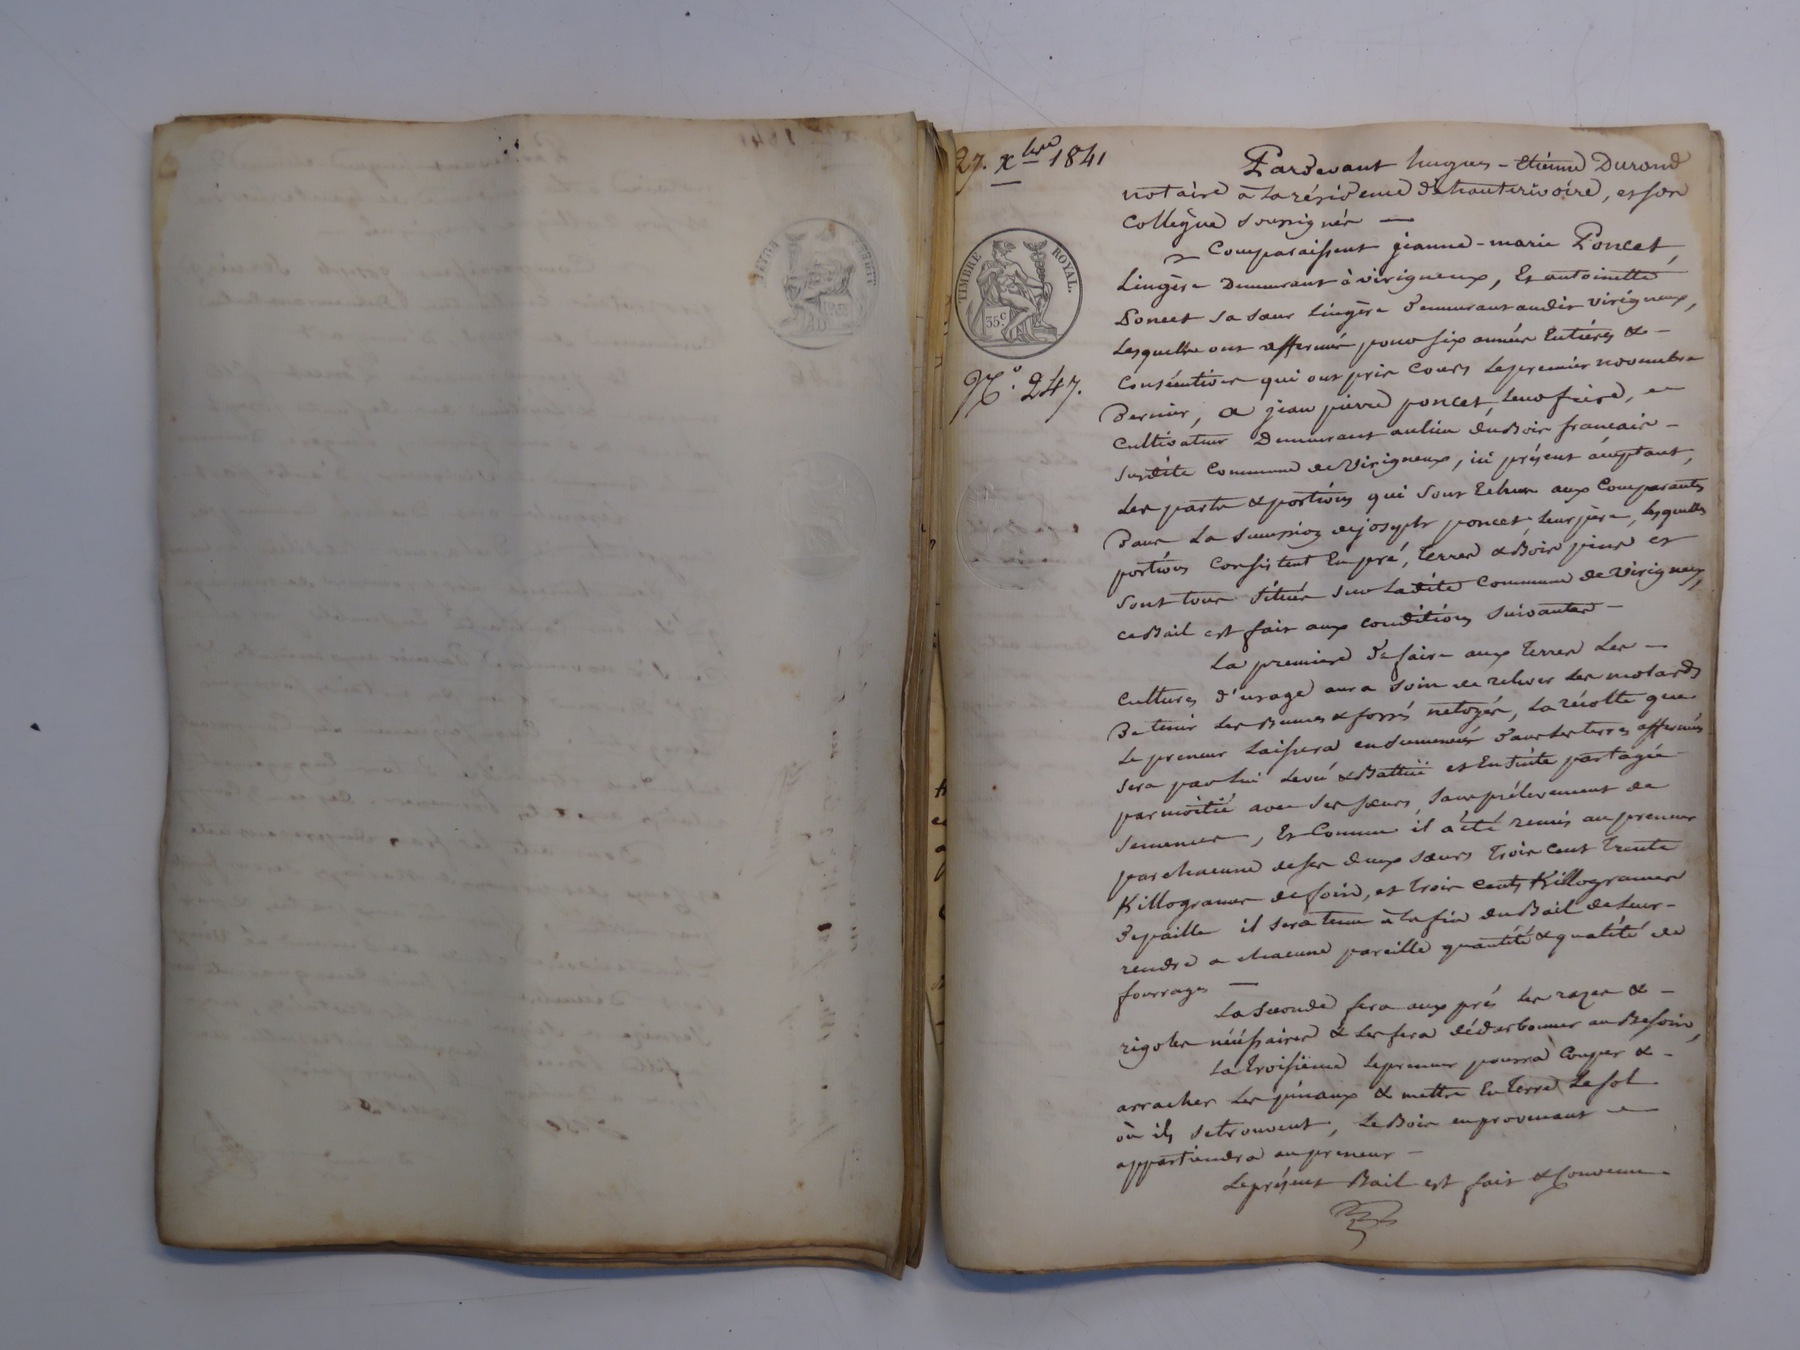 27. Xbre 1841
TIMBRE ROYAL.
35 c
N.° 247.
Pardevant hugues-Etienne Durand
notaire à la résidence d'hauterivoire, et son
Collègue soussignés —
Comparaissent jeanne-marie Poncet,
Lingère Demeurant à virigneux, Et antoinette
Poncet sa sœur Lingère demeurant audit virigneux,
Lesquelles ont affermé pour six années Entières & -
Consécutives qui ont pris Cours le premier novembre
dernier, a jean pierre poncet, leur frère,
Cultivateur Demeurant au lieu du Bois français -
susdite Commune de Virigneux, ici présent acceptant,
Les parts & portions qui sont Echues aux Comparantes
dans La succession de joseph poncet leur père, lesquelles
portions Consistent En pré, terres & Bois pins et
sont tous situés sur Ladite Commune de Virigneux,
ce Bail est fait aux conditions suivantes -
La première de faire aux terres Les -
Cultures d'usage aura soin de relever Les motards
de tenir Les & fossés netoyés, La récolte que
Le preneur Laissera ensemencée dans Les terres affermées
sera par Lui Levée & Battue et Ensuite partagée
par moitié avec ses sœurs, sans prélèvement de
semences, Et Comme il a été remis au preneur
par chacune de ses deux sœurs trois cent trente
Killogrames de foin, et trois cents Killogrames
de paille il sera tenu à la fin du Bail de Leur -
rendre a chacune pareille quantité & qualité de
fourrages —
La seconde fera aux prés Les razes & -
rigoles nécéssaires & Les fera au Besoin,
La troisième Le preneur pourra Couper & -
arracher Les & mettre En terre Le sol
où ils se trouvent, Le Bois en provenant —
appartiendra au preneur -
Le présent Bail est fait & Convenu